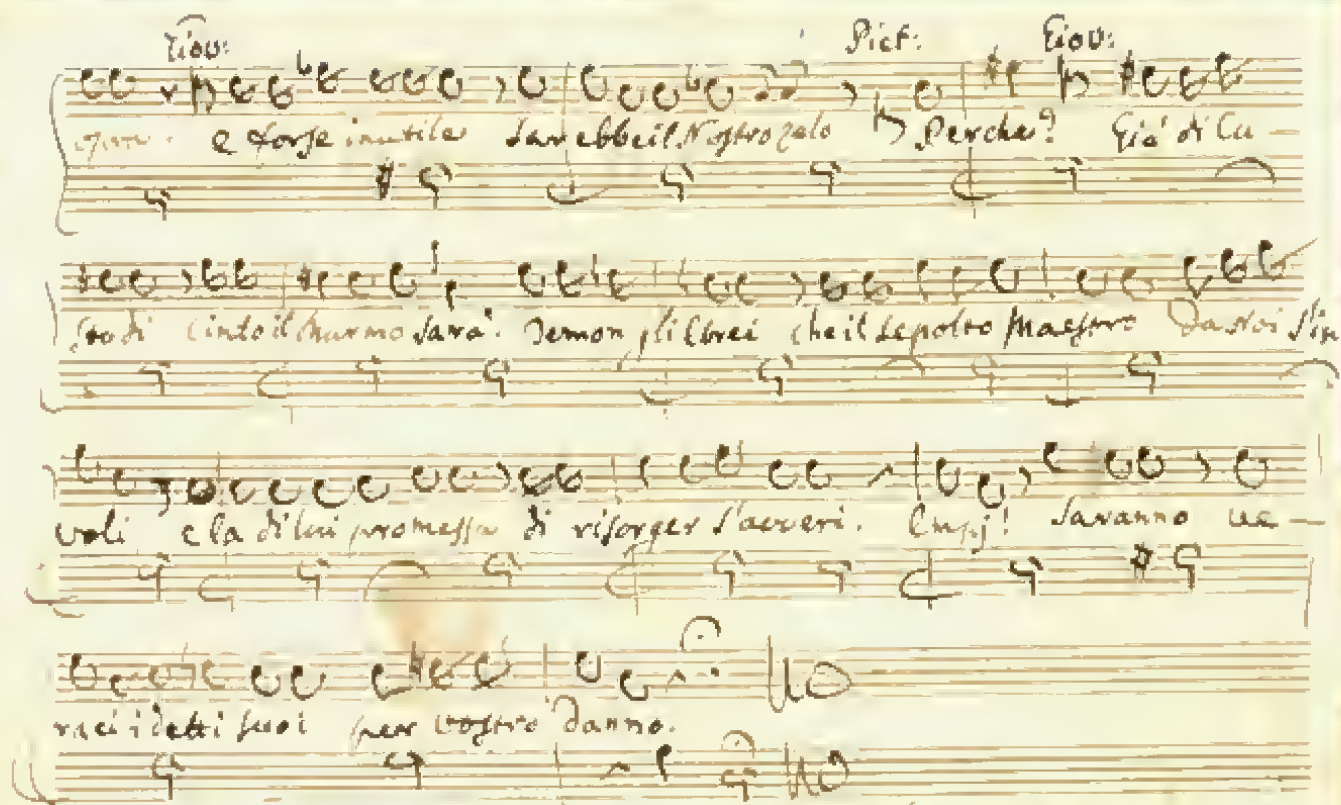 Giov: Piet: Giov:
e forse inutile Sarebbe il Nostro zelo Perche? Già di Cu-
stodi Cinto il Marmo sarà. Temon gli Ebrei che il Sepolto Maestro Da Noi s'in
voli e la di lui promessa di risorger s'avveri. Empj! Saranno ve-
raci i detti suoi per vostro danno.